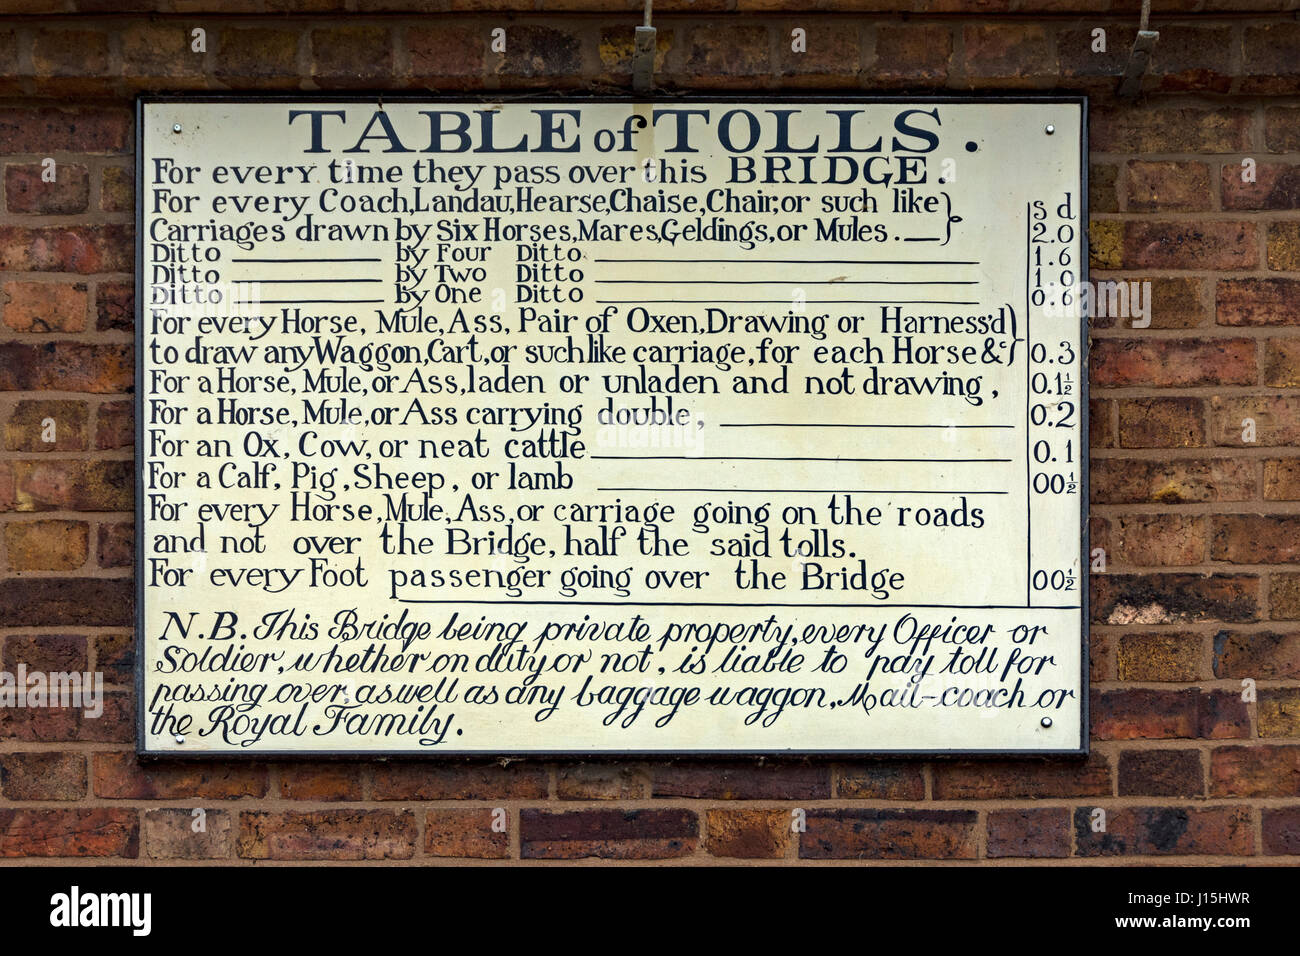 TABLE of TOLLS.
For every time they pass over this BRIDGE.
For every Coach, Landau, Hearse, Chaise, Chair, or such like
s d
Carriages drawn by Six Horses, Mares, Geldings, or Mules. 2.0
Ditto by Four Ditto 1.6
Ditto by Two Ditto 1.0
Ditto by One Ditto 0.6
For every Horse, Mule, Ass, Pair of Oxen, Drawing or Harness'd
to draw any Waggon, Cart, or such like carriage, for each Horse &c 0.3
For a Horse, Mule, or Ass, laden or unladen and not drawing, 0.1½
For a Horse, Mule, or Ass carrying double, 0.2
For an Ox, Cow, or neat cattle 0.1
For a Calf, Pig, Sheep, or lamb 00½
For every Horse, Mule, Ass, or carriage going on the roads
and not over the Bridge, half the said tolls.
For every Foot passenger going over the Bridge 00½
N.B. This Bridge being private property, every Officer or
Soldier, whether on duty or not, is liable to pay toll for
passing over, as well as any baggage waggon, Mail-coach or
the Royal Family.
alamy
Image ID: J15HWR
www.alamy.com